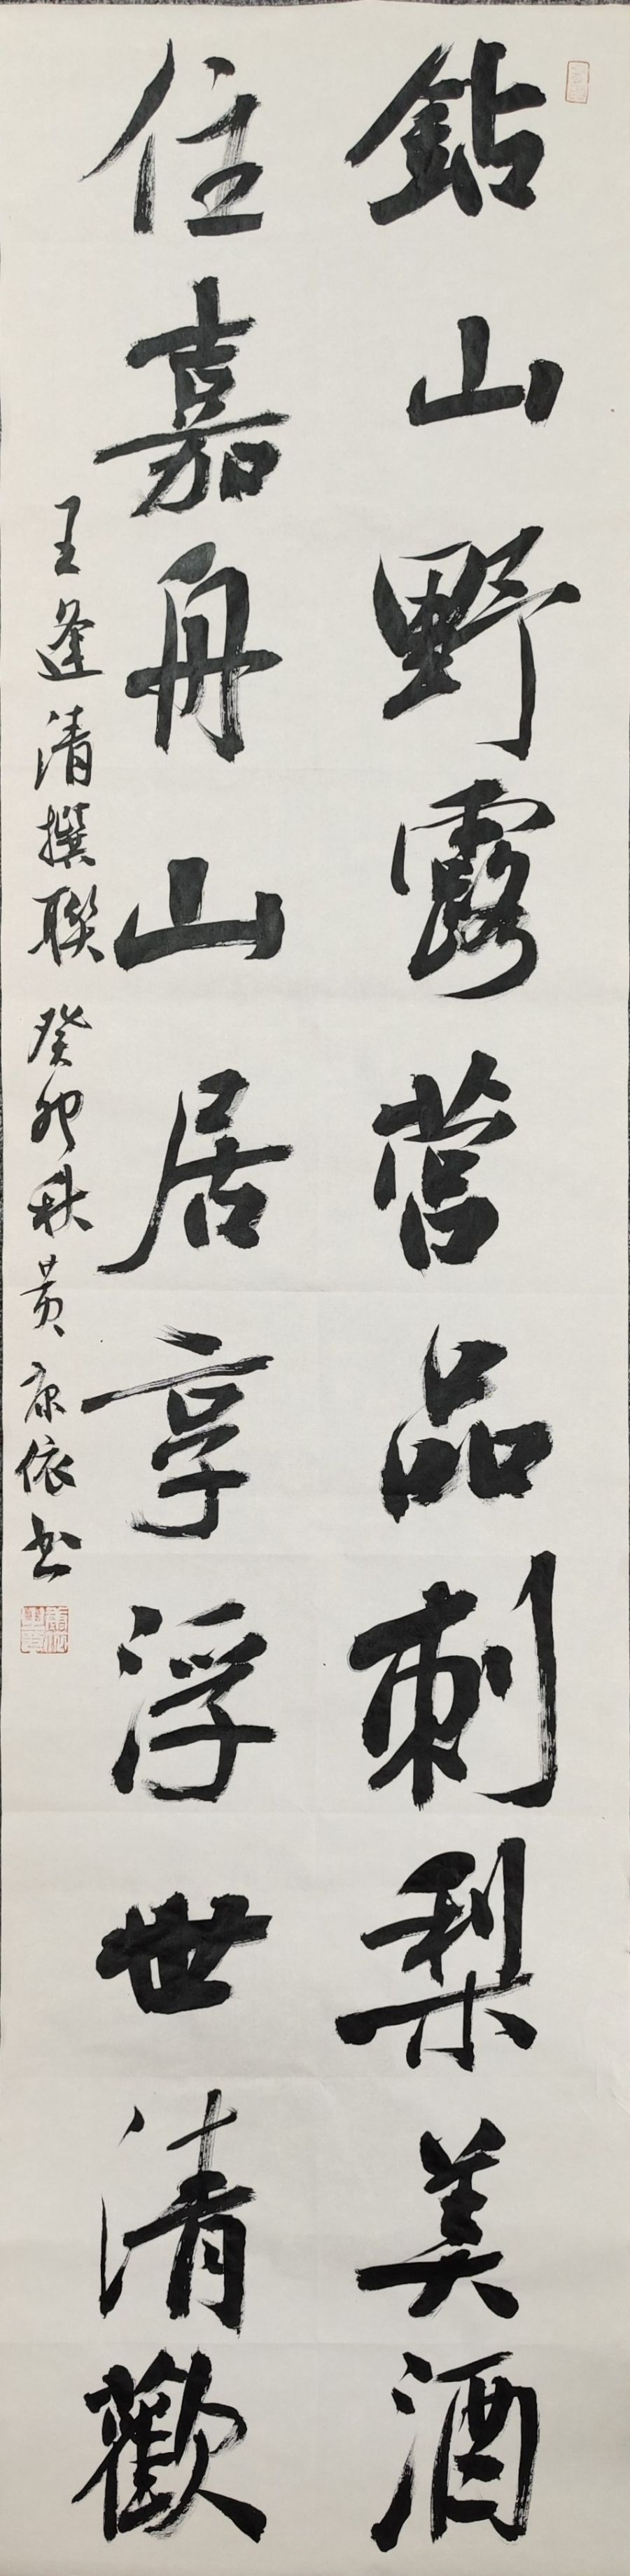 鉆山野露营品刺梨美酒
住嘉舟山居享浮世清歡
王逢清撰聯 癸卯秋 黄康依书